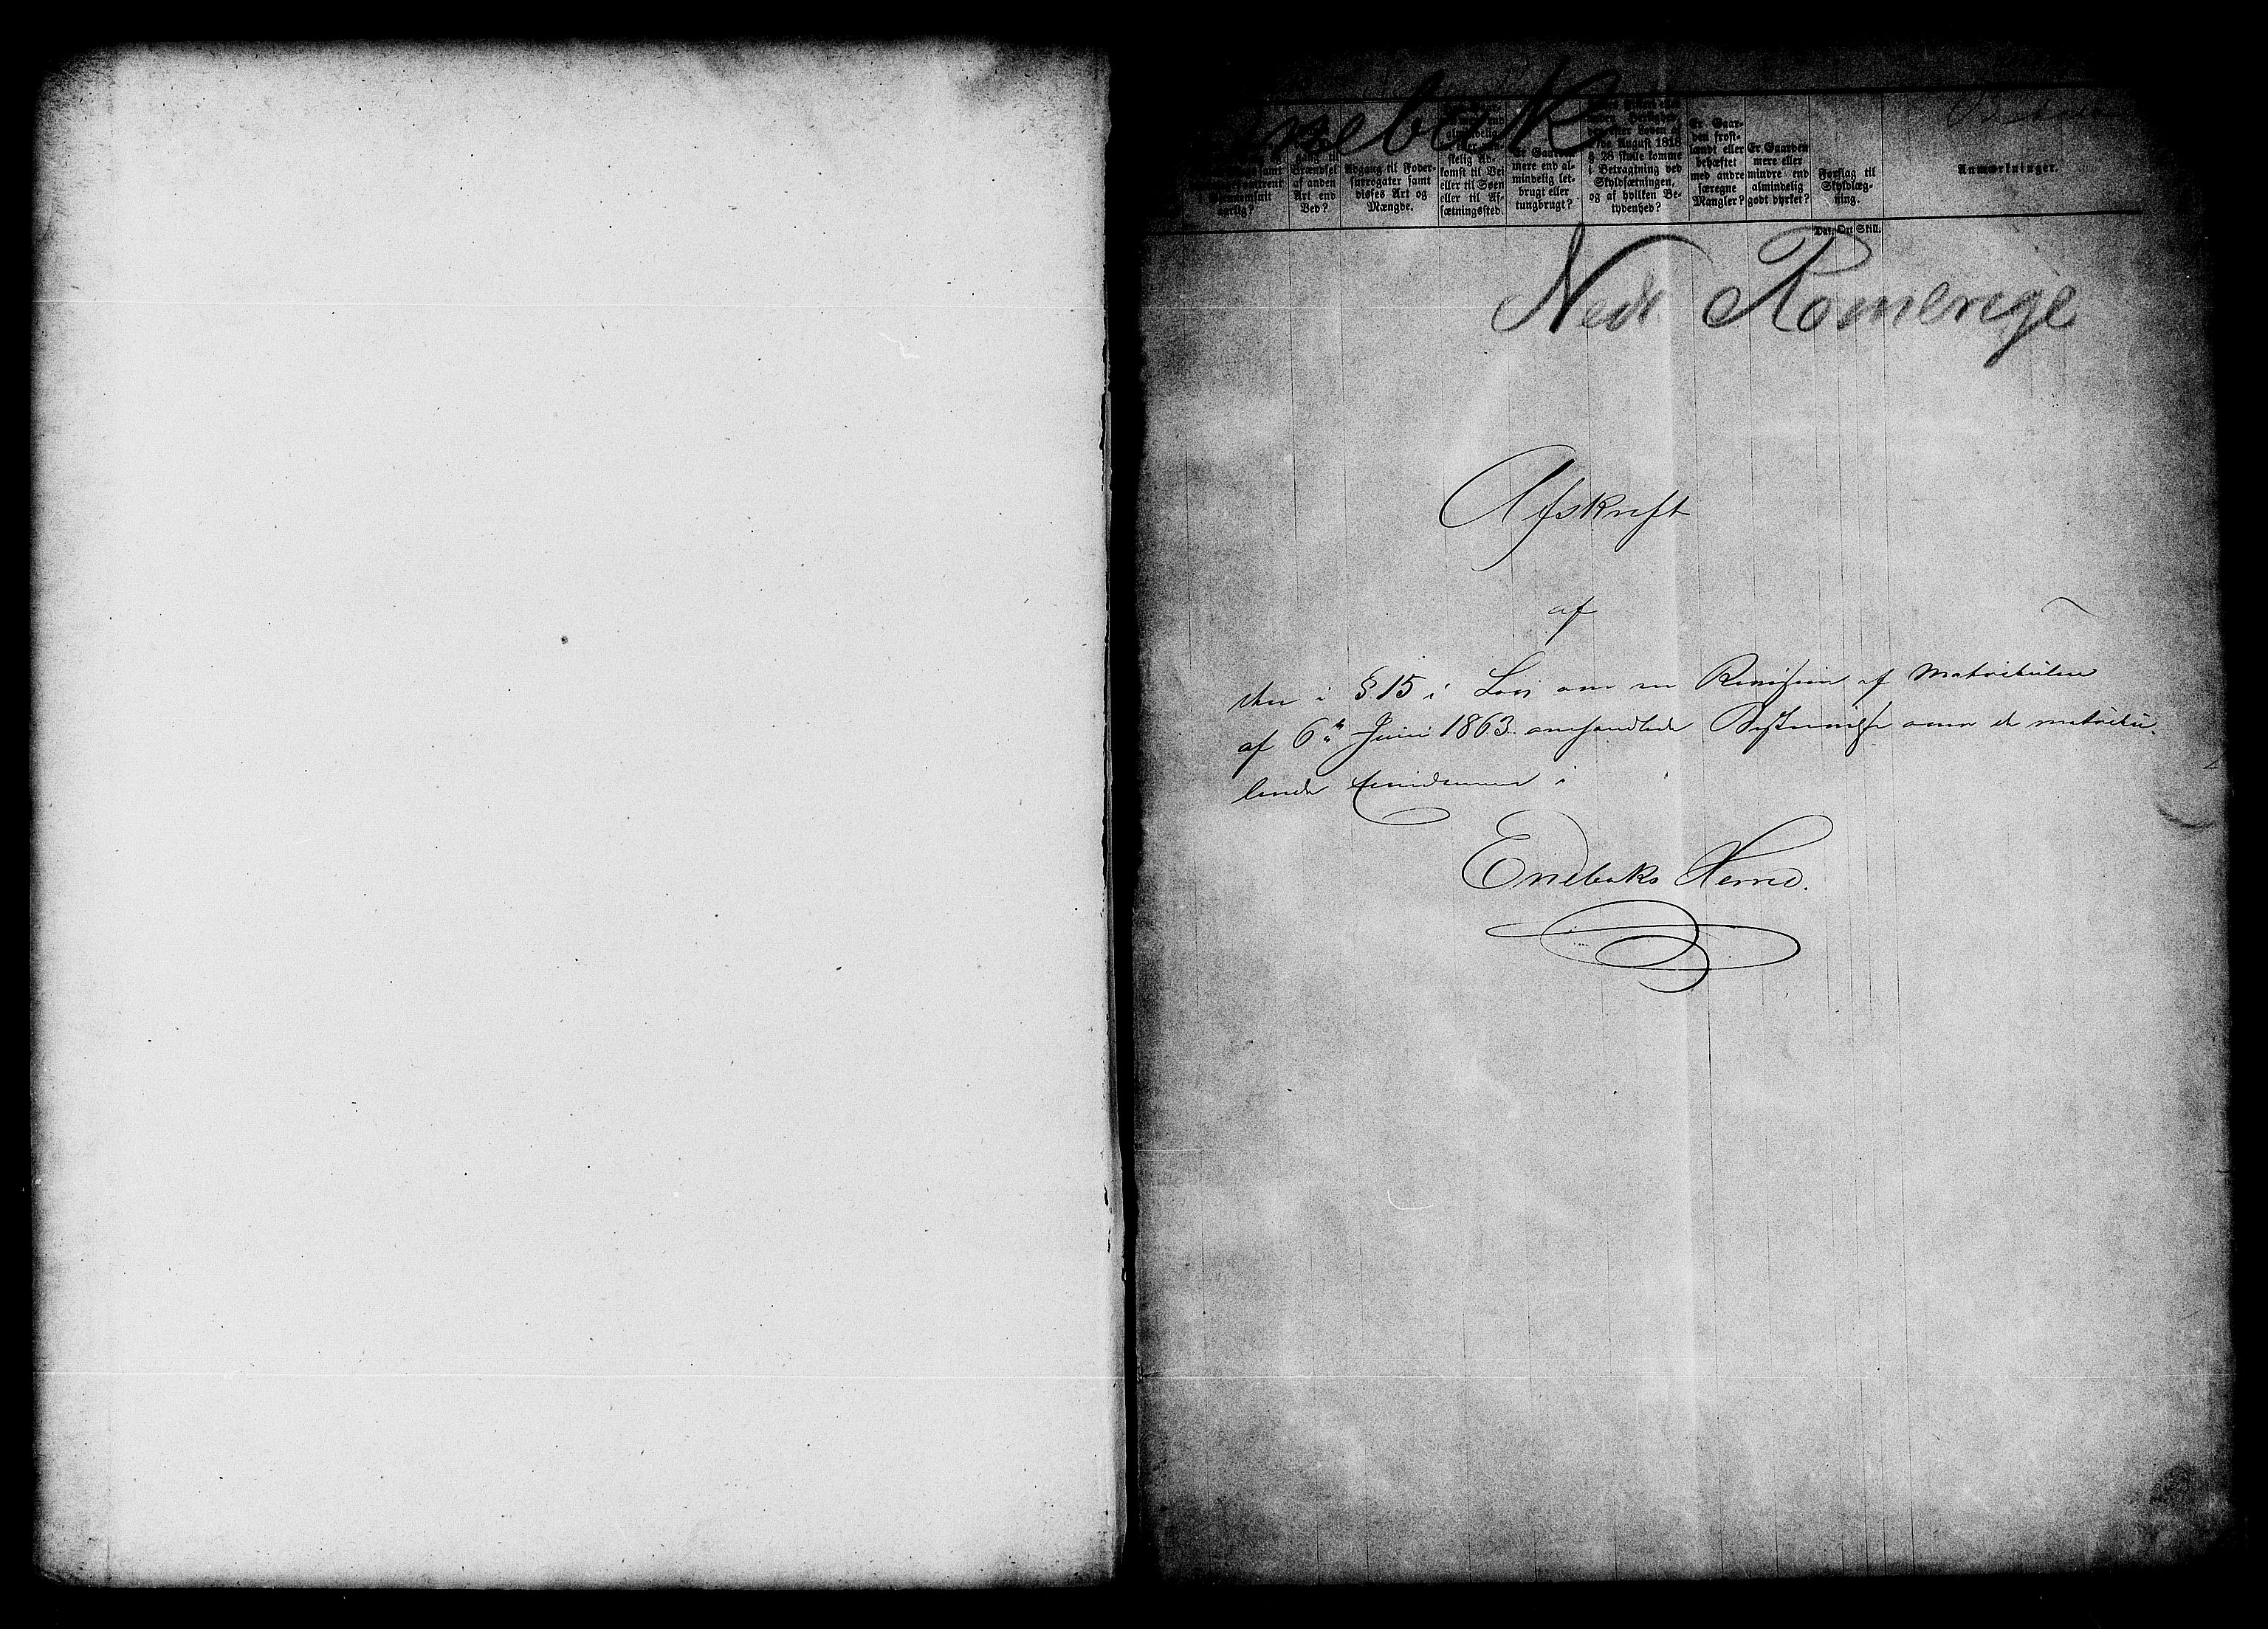 Enebak
gang til Brændsel af anden Art end Ved?
Adgang til Foder-
surrogater samt
disses Art og
Mængde.
komst til Vei
eller til Søen
eller til Af-
sætningssted.
Er Gaarden
mere end al-
mindelig let-
brugt eller
tungbrugt?
August 1818
§. 28 skulle komme
i Betragtning ved
Skyldsætningen,
og af hvilken Be-
tydenhed?
Er Gaar-
den frost-
lændt eller
behæftet
med andre
særegne
Mangler?
Er Gaarden
mere eller
mindre end
almindelig
godt dyrket?
Forslag til
Skyldlæg-
ning.
Dal. Ort Skill.
Anmærkninger.
Nedr Romerige
Afskrift
af
den i § 15 i Lov om en Revision af Matrikulen
af 6te Juni 1863 omhandlede Beskrivelse over de matriku-
lerede Eiendomme i
Enebaks Herred.